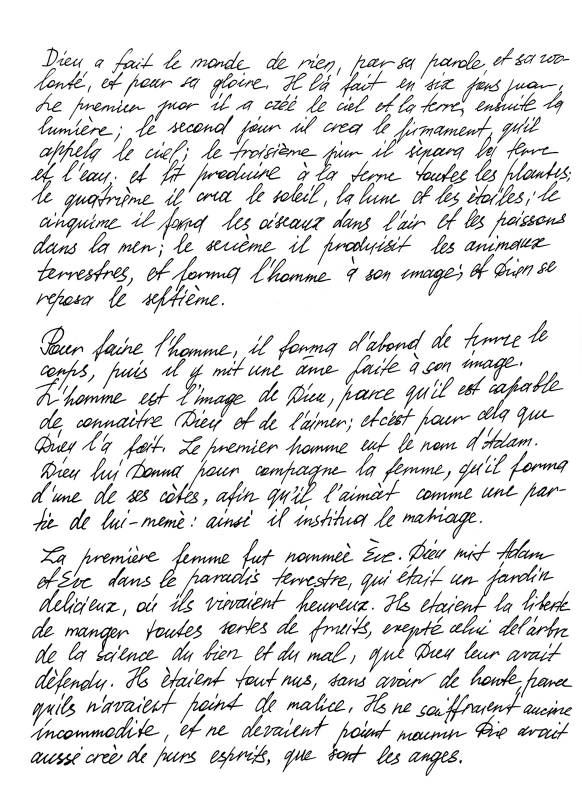 Dieu a fait le monde de rien, par sa parole et sa vo-
lonté, et pour sa gloire. Il l'a fait en six jons jour,
Le premier jour il a créé le ciel et la terre, ensuite la
lumière; le second jour il crea le firmament, qu'il
appela le ciel; le troisième jour il separa la terre
et l'eau; et fit produire à la terre toutes les plantes;
le quatrième il crea le soleil, la lune et les étoiles; le
cinquime il forma les oiseaux dans l'air et les poissons
dans la mer; le sexième il produisit les animaux
terrestres, et forma l'homme à son image; et Dien se
reposa le septième.
Pour faire l'homme, il forma d'abord de terre le
corps, puis il y mit une âme faite à son image.
L'homme est l'image de Dieu, parce qu'il est capable
de connaitre Dieu et de l'aimer; et c'est pour cela que
Dieu l'a fait. Le premier homme eut le nom d'Adam.
Dieu lui Donna pour compagne la femme, qu'il forma
d'une de ses côtes, afin qu'il l'aimàt comme une par-
tie de lui-memè: ainsi il institua le mariage.
La première femme fut nommeè Ève. Dieu mit Adam
et Eve dans le paradis terrestre, qui était un jardin
delicieux, où ils vivaient heureux. Ils etaient la liberte
de manger toutes sortes de fruits, exepté celui del'arbre
de la science du bien et du mal, que Dieu leur avait
défendu. Ils ètaient tout nus, sans avoir de honte parce
quils n'avaient point de malice. Ils ne souffraient aucune
incommodite, et ne devaient point mourir Die avait
aussé creè de purs esprits, que sont les anges.